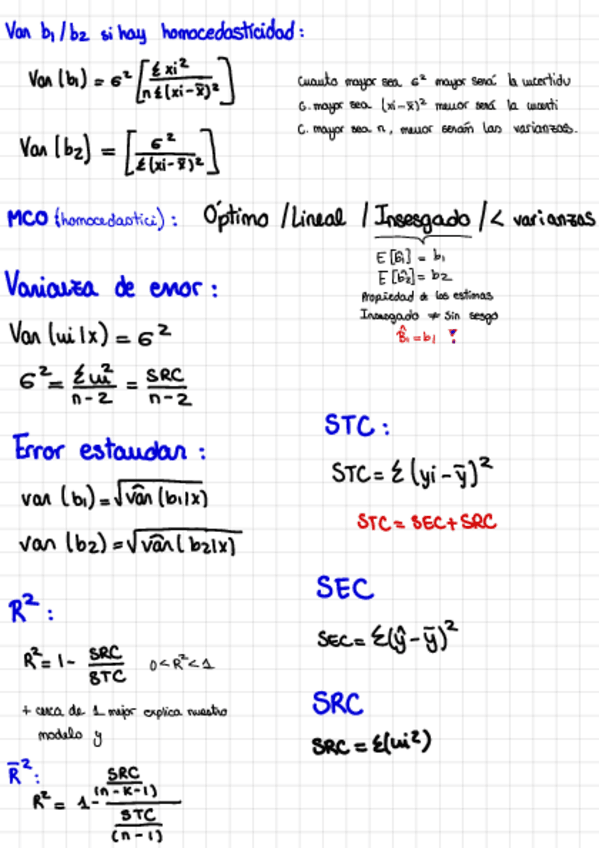 Var b₁/b₂ si hay homocedasticidad:
Var (b₁) = σ² [Σxi² / nΣ(xi-x̄)²]
Cuanto mayor sea σ² mayor será la incertidu
C. mayor sea (xi-x̄)² menor será la incerti
C. mayor sea n, menor serán las varianzas.
Var (b₂) = [σ² / Σ(xi-x̄)²]
MCO (homocedastici): Óptimo / Lineal / Insesgado / < varianzas
E[b̂₁] = b₁
E[b̂₂] = b₂
Propiedad de los estimas
Insesgado ≠ sin sesgo
b̂₁ = b₁ ?
Varianza de error:
Var (ui|x) = σ²
σ² = Σui² / n-2 = SRC / n-2
Error estandar:
var (b₁) = √vâr (b₁|x)
var (b₂) = √vâr (b₂|x)
STC:
STC = Σ(yi-ȳ)²
STC = SEC + SRC
SEC
SEC = Σ(ŷ-ȳ)²
SRC
SRC = Σ(ui²)
R²:
R² = 1 - SRC / STC   0<R²<1
+ cerca de 1 mejor explica nuestro
modelo y
R̄²:
R² = 1 - SRC/(n-K-1) / STC/(n-1)